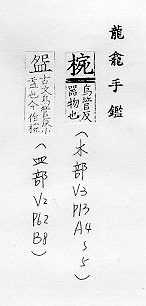 龍龕手鑑
椀
烏管反
器物也
(木部V3P13A4S5)
盌
古文烏管反小
盂也今作椀
(皿部V2P62B8)